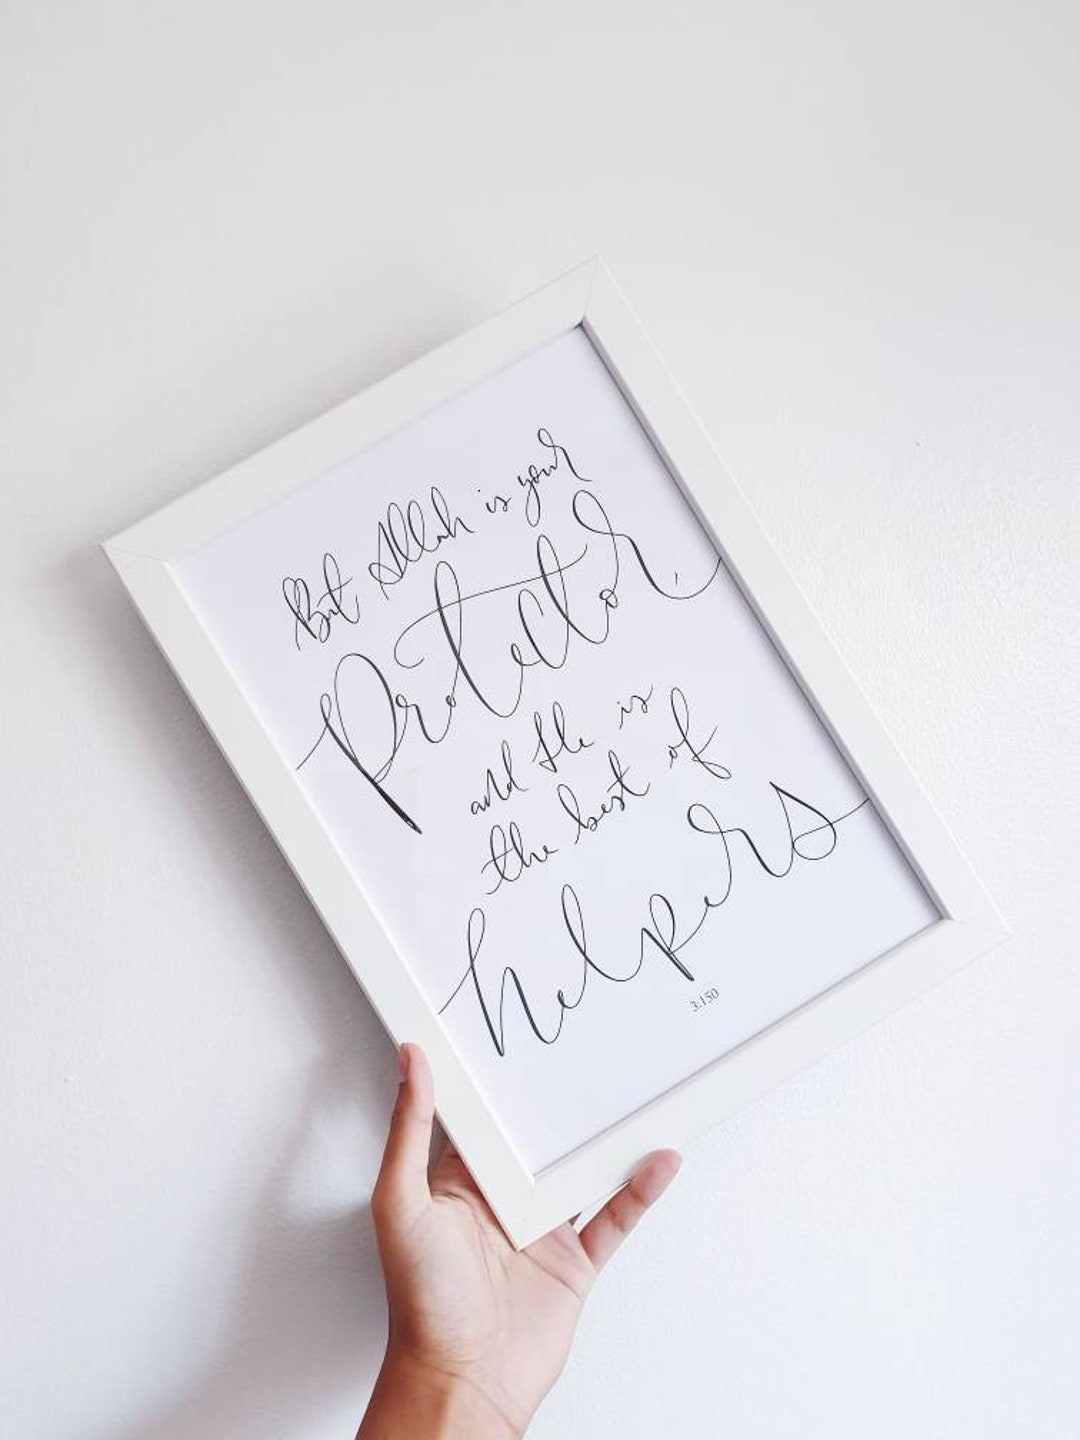 But Allah is your
Protector,
and He is
the best of
helpers
3:150